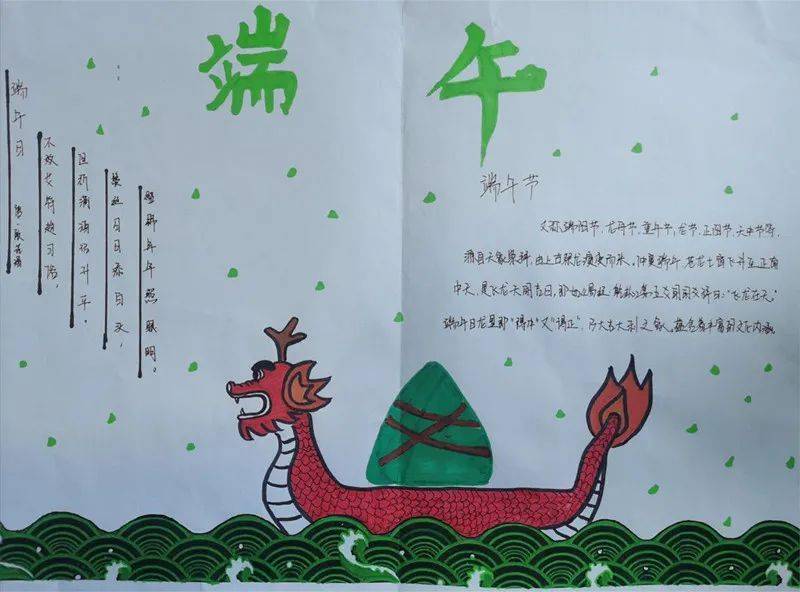 端午
端午日
不效艾符趋习俗,
祈蒲酒话升平。
鬓丝日日添白头,
榴锦年年照眼明。
端午节
又称端阳节、龙舟节、重午节、龙节、正阳节、天中节等,
源自天象崇拜,由上古祭龙演变而来。仲夏端午,苍龙七宿飞升至正南
中天,是飞龙在天吉日,即如《易经·乾卦》第五爻的爻辞曰:"飞龙在天"。
端午日龙星既"得中"又"得正",乃大吉大利之象。蕴含着丰富的文化内涵